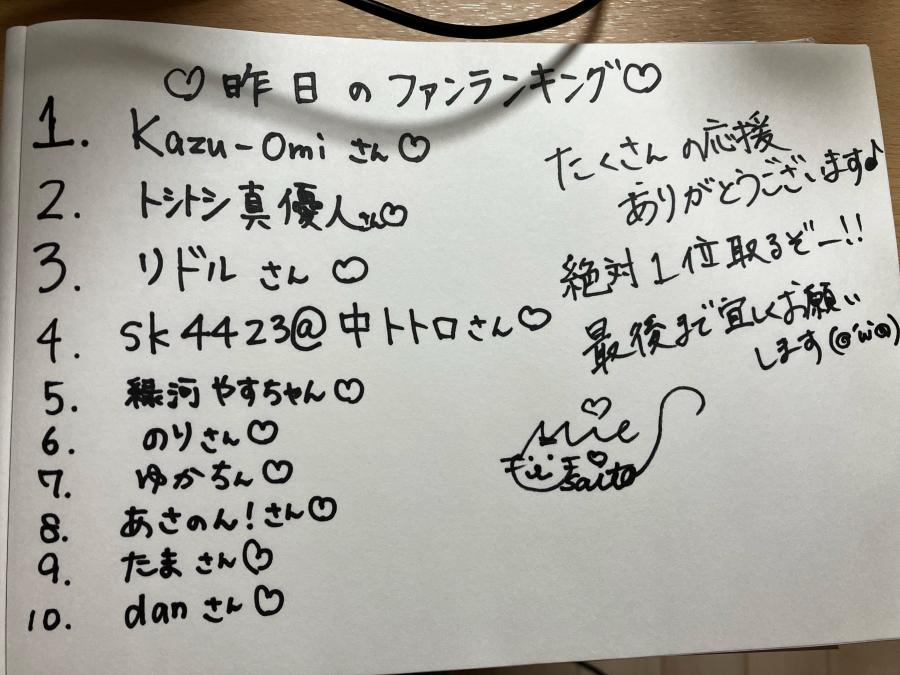 ♡昨日のファンランキング♡
1. Kazu-Omi さん♡
2. トシトシ真優人さん♡
3. リドル さん ♡
4. sk4423@中トトロさん♡
5. 緑河 やすちゃん♡
6. のりさん♡
7. ゆかちん♡
8. あさのん!さん♡
9. たま さん♡
10. dan さん♡
たくさんの応援
ありがとうございます♪
絶対1位取るぞー!!
最後まで宜しくお願い
します(@'ω'@)
Mie
Saito